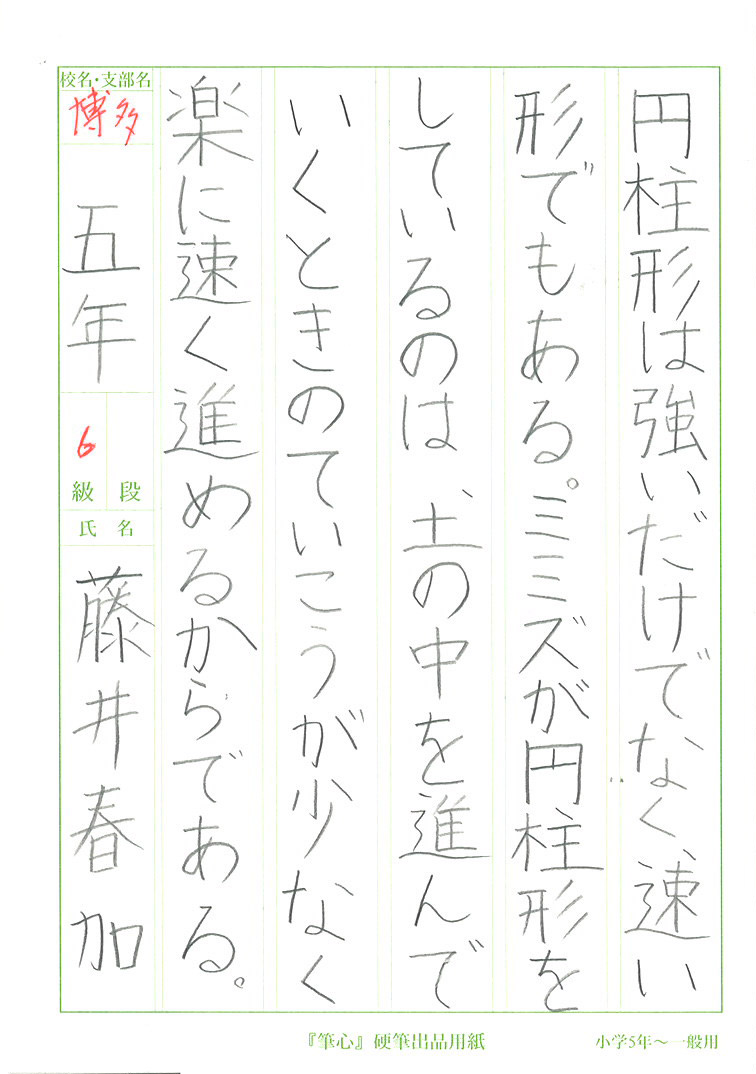 円柱形は強いだけでなく、速い
形でもある。ミミズが円柱形を
しているのは、土の中を進んで
いくときのていこうが少なく
楽に速く進めるからである。
校名・支部名
博多
五年
6
級 段
氏 名
藤井春加
『筆心』硬筆出品用紙
小学5年～一般用